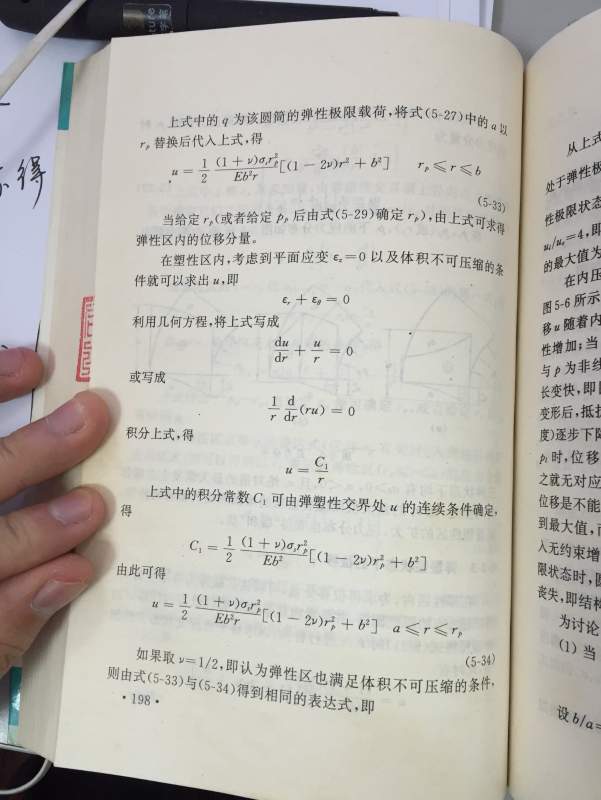 上式中的 q 为该圆筒的弹性极限载荷,将式(5-27)中的 a 以
r_p 替换后代入上式,得
u = \frac{1}{2} \frac{(1+ν)σ_s r_p^2}{Eb^2 r}[(1-2ν)r^2 + b^2]    r_p ⩽ r ⩽ b
(5-33)
当给定 r_p(或者给定 p_p 后由式(5-29)确定 r_p),由上式可求得
弹性区内的位移分量。
在塑性区内,考虑到平面应变 ε_z=0 以及体积不可压缩的条
件就可以求出 u,即
ε_r + ε_θ = 0
利用几何方程,将上式写成
\frac{du}{dr} + \frac{u}{r} = 0
或写成
\frac{1}{r} \frac{d}{dr}(ru) = 0
积分上式,得
u = \frac{C_1}{r}
上式中的积分常数 C_1 可由弹塑性交界处 u 的连续条件确定,
得
C_1 = \frac{1}{2} \frac{(1+ν)σ_s r_p^2}{Eb^2}[(1-2ν)r_p^2 + b^2]
由此可得
u = \frac{1}{2} \frac{(1+ν)σ_s r_p^2}{Eb^2 r}[(1-2ν)r_p^2 + b^2]    a ⩽ r ⩽ r_p
(5-34)
如果取 ν=1/2,即认为弹性区也满足体积不可压缩的条件,
则由式(5-33)与(5-34)得到相同的表达式,即
· 198 ·
从上式
处于弹性极
性极限状态
u_i/u_e=4,即
的最大值为
在内压
图 5-6 所示
移 u 随着内
性增加;当
与 p 为非线
长变快,即
变形后,抵抗
度)逐步下降
p_l 时,位移
之就无对应
位移是不能
到最大值,而
入无约束增
限状态时,圆
丧失,即结构
为讨论
(1) 当
设 b/a=
得